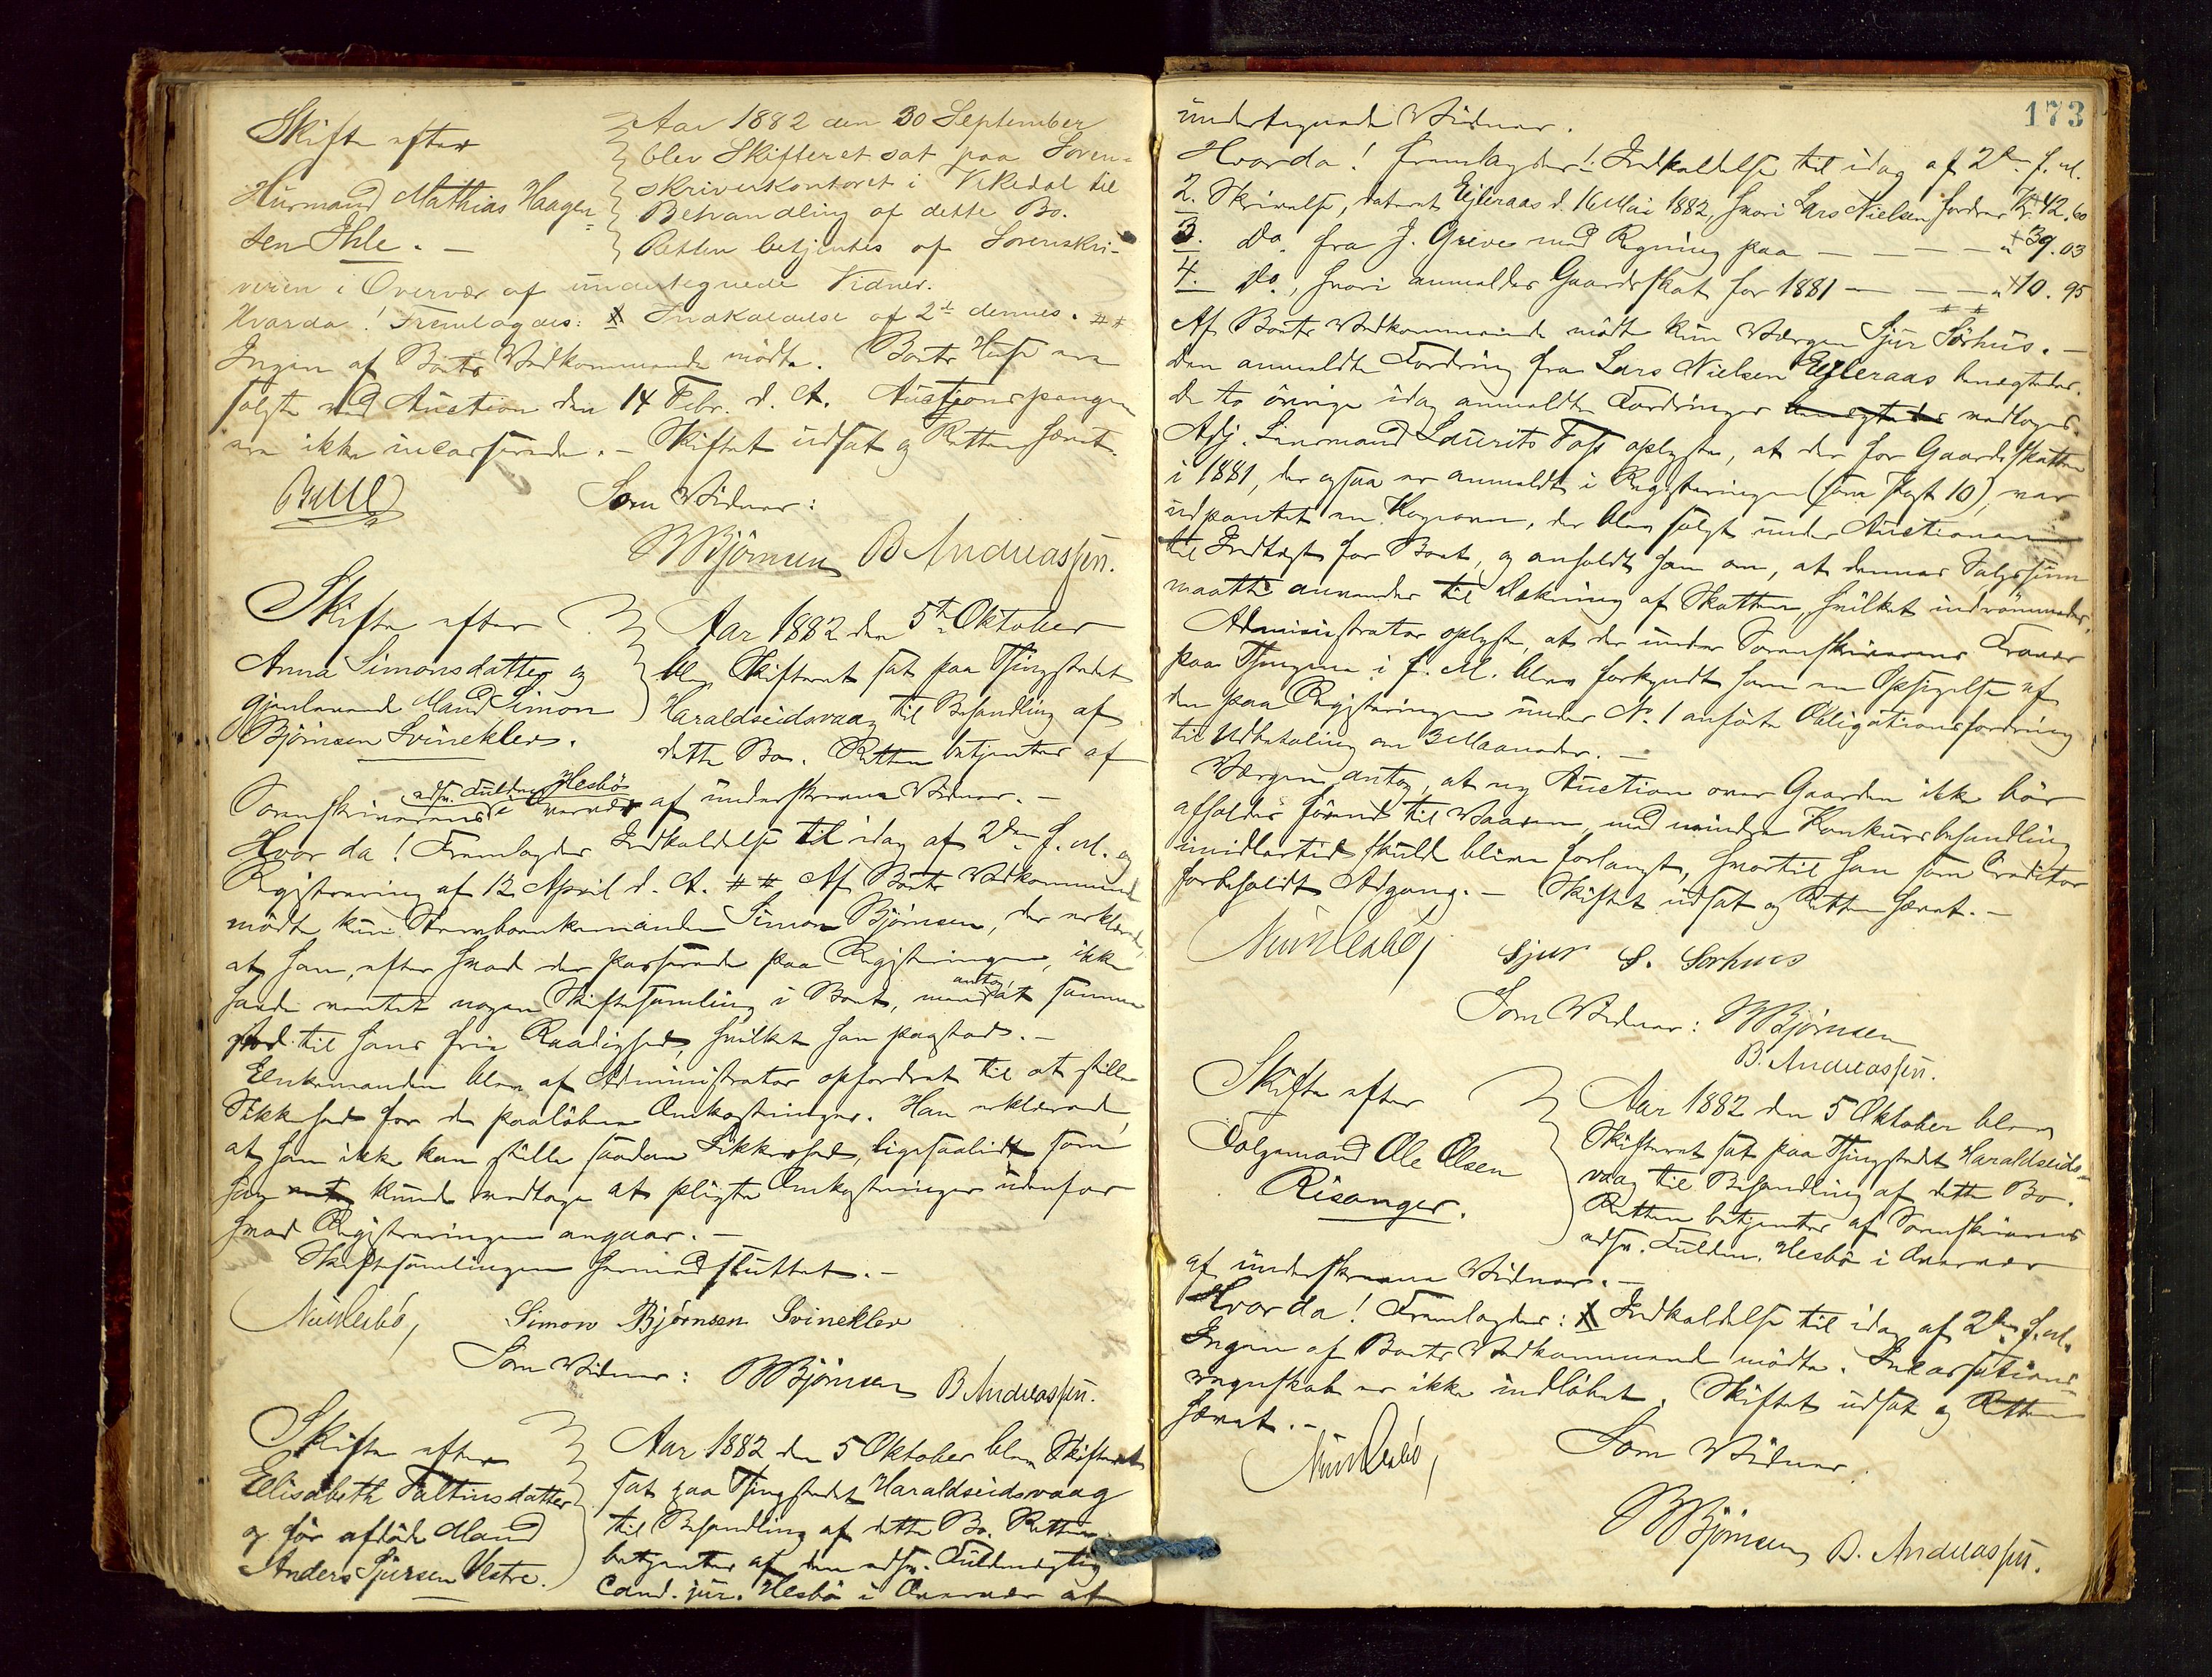 Skifte efter
Husmand Mathias Haagen=
sen Ihle. —
Aar 1882 den 30 September
blev Skifteret sat paa Soren=
skriverkontoret i Vikedal til
Behandling af dette Bo.
Retten betjentes af Sorenskri-
veren i Overvær af undertegnede Vidner.
Hvorda! Fremlagdes: 1 Indkaldelse af 2de dennes. ##
Ingen af Boets Vedkommende mødte. Boets Huse ere
solgte ved Auction den 14 Febr. d. A. Auctjonspengene
ere ikke incasserede. — Skiftet udsat og Retten hævet.
Som Vidner:
BBjörnsen B Andreassen.
Skifte efter
Anna Simonsdatter og
gjenlevende Mand Simon
Björnsen Svinekler.
Aar 1882 den 5te Oktober
blev Skifteret sat paa Thingstedet
Haraldseidsvaag til Behandling af
dette Bo. Retten betjentes af
edsv. Fuldm. Hesbö
Sorenskriverens i Overvær af underskrevne Vidner. —
Hvor da! Fremlagdes Indkaldelse til idag af 2den f. M. og
Registrering af 12 April d. A. ## Af Boets Vedkommende
mödte kun Stervboenkemanden Simon Björnsen, der erklærede,
at han, efter hvad der passerede paa Registreringen, ikke
antog,
havde ventet nogen Skiftesamling i Boet, men at samme
stod til hans frie Raadighed, hvilket han paastod. —
Enkemanden blev af Administrator opfordret til at stille
Sikkerhed for de paalöbne Omkostninger. Han erklærede,
at han ikke kan stille saadan Sikkerhed, ligesaalidt som
han kunde vedtage at pligte Omkostninger udenfor
hvad Registreringen angaar. —
Skiftesamlingen hermed sluttet. —
Simon Bjørnsen Svinekler
Som Vidner: BBjörnsen B Andreassen.
Skifte efter
Elisabeth Faltinsdatter
og för afdöde Mand
Anders Sjursen Vestre.
Aar 1882 den 5 Oktober blev Skifteret
sat paa Thingstedet Haraldseidsvaag
til Behandling af dette Bo. Retten
betjentes af den edsv. Fuldmægtig
Cand. jur. Hesbö i Overvær af
173
undertegnede Vidner.
Hvorda! fremlagdes 1. Indkaldelse til idag af 2den f. M.
2. Skrivelse, dateret Ejleraas d. 16 Mai 1882, hvori Lars Nielsen fordrer Kr. 42.60
3. do. fra J. Greve med Regning paa — — — — " 39.03
4. do., hvori anmeldes Gaardsskat for 1881 — — — " 10.95
Af Boets Vedkommende mödte kun Værgen Sjur Sörhus. —
Den anmeldte Fordring fra Lars Nielsen Ejleraas benegtedes.
De to övrige idag anmeldte Fordringer benegtedes vedtoges.
Adj. Lensmand Laurits Foss oplyste, at der for Gaardsskatten
i 1881, der ogsaa er anmeldt i Registreringen (som Post 10), var
udpantet en Kogeovn, der blev solgt under Auctionen
til Indtægt for Boet, og anholdt han om, at dennes Salgssum
maatte anvendes til Dækning af Skatten, hvilket indrömmedes.
Administrator oplyste, at der under Sorenskriverens Fravær
paa Thingene i f. M. blev forkyndt ham en Opsigelse af
den paa Registreringen under No. 1 anförte Obligationsfordring
til Udbetaling om 3 Maaneder. —
Værgen antog, at ny Auction over Gaarden ikke bör
afholdes förend til Vaaren, med mindre Konkursbehandling
imidlertid skulde blive forlangt, hvortil han som Creditor
forbeholdt Adgang. — Skiftet udsat og Retten hævet. —
Sjur S. Sørhus
Som Vidner: BBjörnsen
B. Andreassen.
Skifte efter
Folgemand Ole Olsen
Risanger.
Aar 1882 den 5 Oktober blev
Skifteret sat paa Thingstedet Haraldseids=
vaag til Behandling af dette Bo.
Retten betjentes af Sorenskriverens
edsv. Fuldm. Hesbö i Overvær
af underskrevne Vidner. —
Hvor da! Fremlagdes: 1 Indkaldelse til idag af 2den f. M.
Ingen af Boets Vedkommende mödte. Incassations=
regnskab er ikke indlöbet. Skiftet udsat og Retten
hævet. —
Som Vidner
BBjörnsen B. Andreassen.